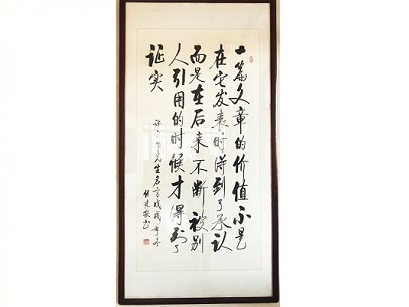 一篇文章的价值不是
在它发表时得到了承认
而是在后来不断被别
人引用的时候才得到了
证实
先生名言戊戌年冬